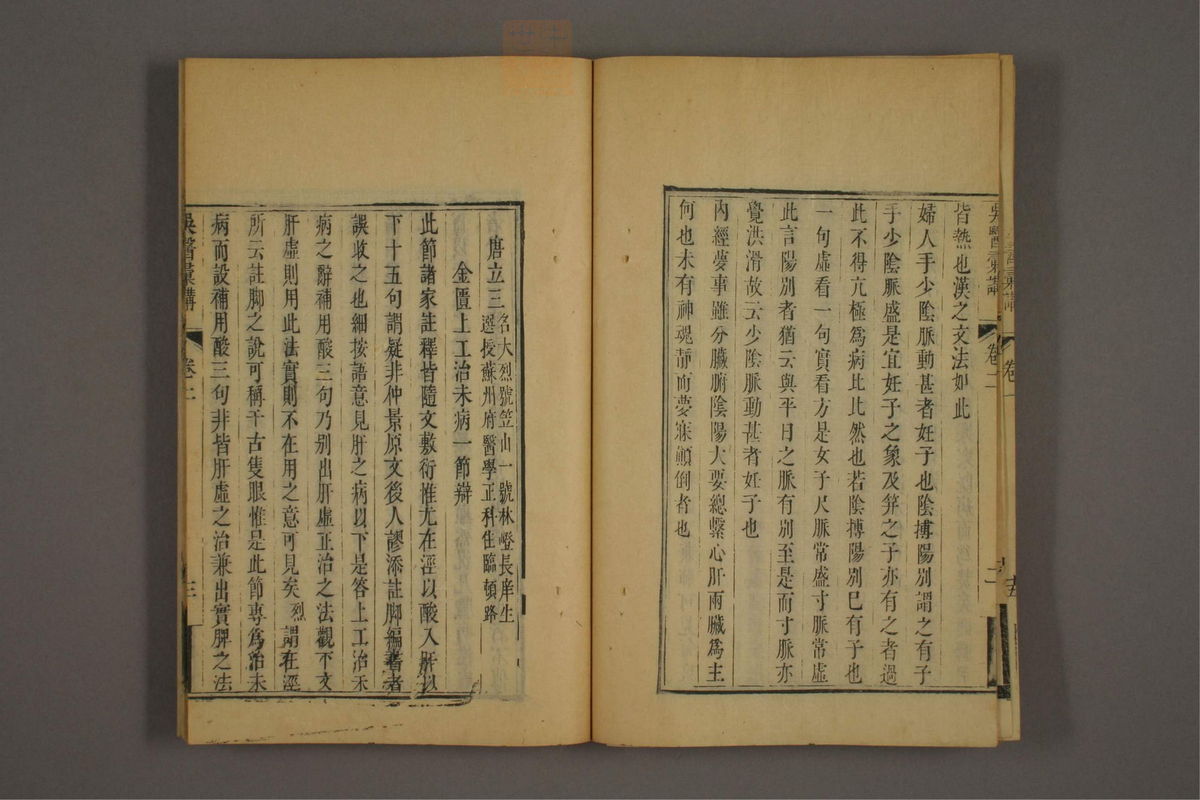 吳醫彙講
卷二
二
皆熱也漢之文法如此
婦人手少陰脈動甚者妊子也陰搏陽別謂之有子
手少陰脈盛是宜妊子之象及笄之子亦有之者過
此不得亢極為病比比然也若陰搏陽別已有子也
一句虛看一句實看方是女子尺脈常盛寸脈常虛
此言陽別者猶云與平日之脈有別至是而寸脈亦
覺洪滑故云少陰脈動甚者妊子也
內經夢事雖分臟腑陰陽大要總繫心肝兩臟為主
何也未有神魂靜而夢寐顛倒者也
唐立三名大烈號笠山一號林嶝長庠生
選授蘇州府醫學正科住臨頓路
金匱上工治未病一節辯
此節諸家註釋皆隨文敷衍惟尤在涇以酸入肝以
下十五句謂疑非仲景原文後人謬添註脚編書者
誤收之也細按語意見肝之病以下是答上工治未
病之辭補用酸三句乃別出肝虛正治之法觀下文
肝虛則用此法實則不在用之意可見矣烈謂在涇
所云註脚之說可稱千古隻眼惟是此節專為治未
病而設補用酸三句非皆肝虛之治兼出實脾之法
吳醫彙講
卷二
三